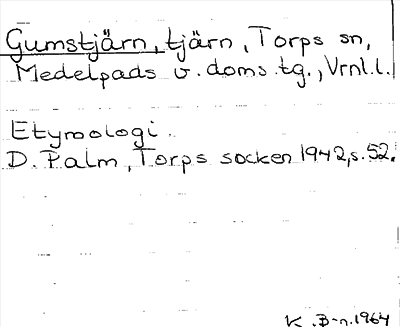 Gumstjärn, tjärn, Torps sn,
Medelpads v. doms.tg., Vrnl.l.
Etymologi.
D. Palm, Torps socken 1942, s. 52.
K. B-n. 1964